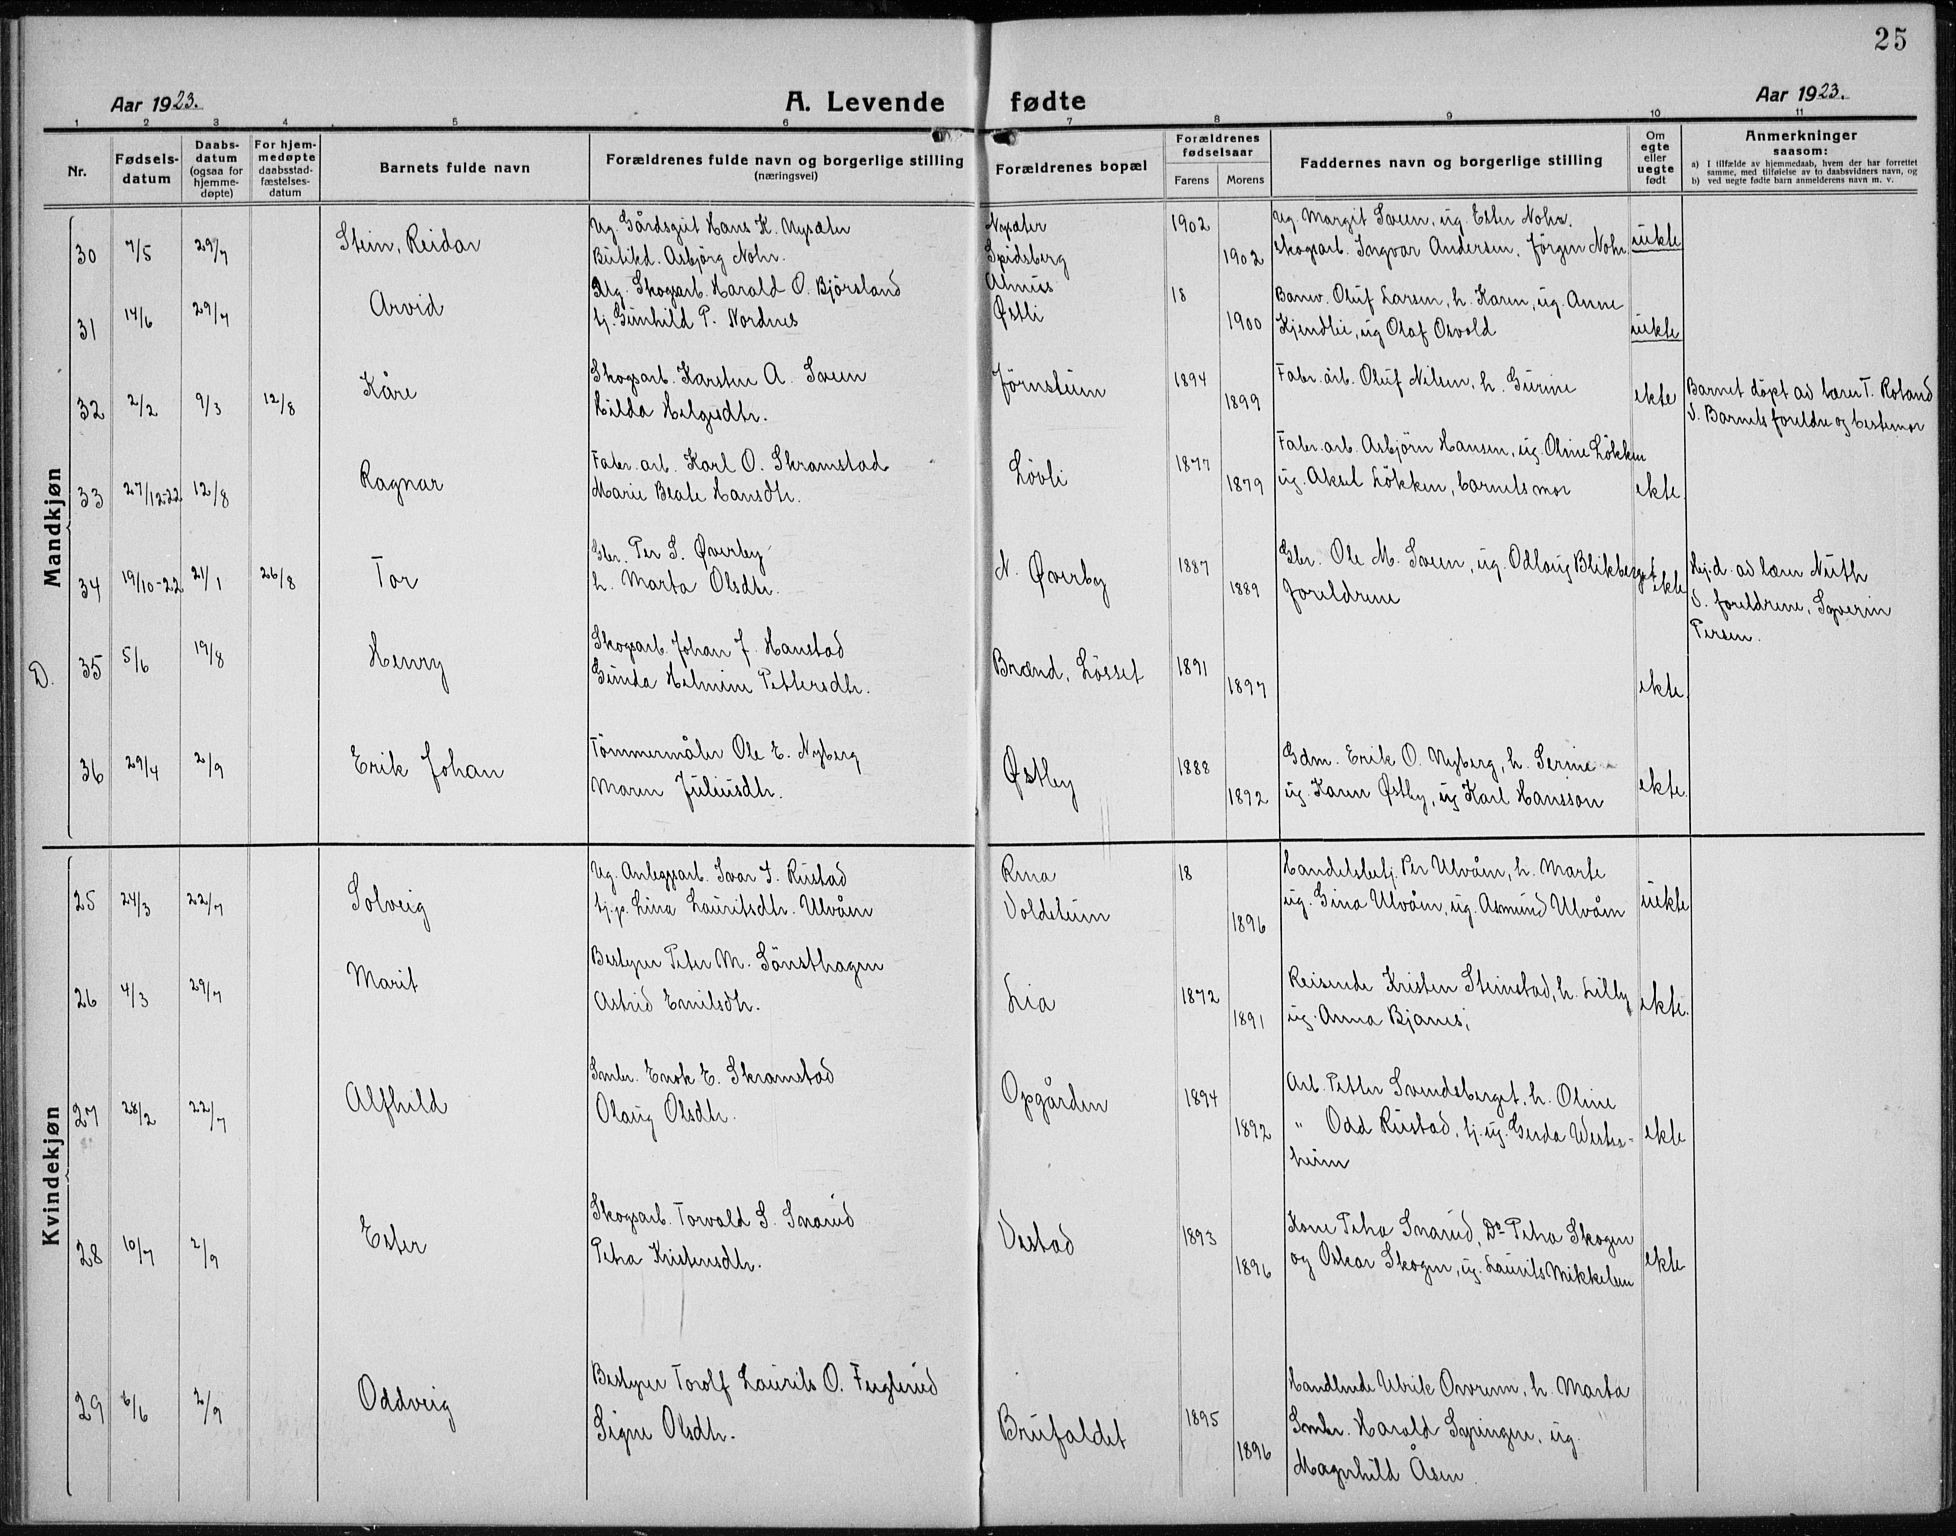 25
Aar 1923.
A. Levende fødte
Aar 1923.
1 2 3 4 5 6 7 8 9 10 11
Nr.
Fødsels-
datum
Daabs-
datum
(ogsaa for
hjemme-
døpte)
For hjem-
medøpte
daabsstad-
fæstelses-
datum
Barnets fulde navn
Forældrenes fulde navn og borgerlige stilling
(næringsvei)
Forældrenes bopæl
Forældrenes
fødselsaar
Farens
Morens
Faddernes navn og borgerlige stilling
Om
egte
eller
uegte
født
Anmerkninger
saasom:
a) I tilfælde av hjemmedaab, hvem der har forrettet
samme, med tilføielse av to daabsvidners navn, og
b) ved uegte fødte barn anmelderens navn m. v.
Mandkjøn
30 7/5 29/7 Stein, Reidar
Ug. Gårdsgut Hans K. Nysæter
Butikd. Asbjørg Nohr.
Nysæter
Spidsberg
1902
1902
Ug. Margit Sveen, ug. Ester Nohr.
Skogsarb. Ingvar Andersen, Jørgen Nohr
uekte
31 14/6 29/7 Arvid
Ug. Skogsarb. Harald O. Bjørsland
tj. Gunhild P. Nordnes
Østli
18
1900
Banev. Oluf Larsen, h. Karen, ug. Anne
Kjendlie, ug Olaf Osvold
uekte
32 2/2 9/3 12/8 Kåre
Skogsarb. Karsten A. Sveen
Hilda Helgesdtr.
Jørnstuen
1894
1899
Fabr. arb. Oluf Nilsen, h. Gurine
ekte
Barnet døpt av lærer T. Roland
V. Barnets foreldre og bestemor
33 27/12-22 12/8 Ragnar
Fabr. arb. Karl O. Skramstad
Marie Beate Hansdtr.
Løvli
1877
1879
Fabr. arb. Asbjørn Hansen, ug. Oline Løkken
ug. Aksel Løkken, barnets mor
ekte
34 19/10-22 21/1 26/8 Tor
Gbr. Per S. Øverby
h. Marta Olsdtr.
N. Øverby
1887
1889
Gbr. Ole M. Sveen, ug. Odlaug Blikberget
foreldrene
ekte
Hj.d. av lærer Nuth
V. foreldrene, Syverin
Persen.
D. 35 5/6 19/8 Henry
Skogsarb. Johan J. Hanstad
Gunda Helmine Pettersdtr.
Brænd, Løsset
1891
1897
ekte.
36 29/4 2/9 Erik Johan
Tømmermåler Ole E. Nyberg
Maren Juliusdtr.
Østby
1888
1892
Gdm. Erik O. Nyberg, h. Serine
ug. Karen Østby, ug Karl Hansson
ekte.
Kvindekjøn
25 24/3 22/7 Solveig
Ug. Anleggsarb. Ivar S. Rustad
tj.p. Lina Lauritsdtr. Ulvåen
Rena
Voldstuen
18
1896
Handelsbetj. Per Ulvåen, h. Marte
ug. Gina Ulvåen, ug. Asmund Ulvåen
uekte
26 4/3 29/7 Marit
Bestyrer Peter M. Sønsthagen
Astrid Emilsdtr.
Lia
1872
1891
Reisende Kristen Steinstad, h. Lilly
ug. Anna Bjanes;
ekte.
27 28/2 22/7 Alfhild
Smbr. Enok E. Skramstad
Olaug Olsdtr.
Opgården
1894
1892
Arb. Petter Svendsberget, h. Oline
" Odd Rustad, tj. ug. Gerda Wester-
heim
ekte
28 10/7 2/9 Ester
Skogsarb. Torvald S. Snarud
Petra Kristensdtr.
Vestad
1893
1896
Kone Petra Snarud, Do Petra Skogen
og Oskar Skogen, ug. Laurits Mikkelsen
ekte
29 6/6 2/9 Oddveig
Bestyrer Torolf Laurits O. Fuglerud
Signe Olsdtr.
Brufaldet
1895
1896
Handlende Ulrik Osvrenn, h. Marta
Smbr. Harald Syringen, ug.
Magnhild Åsen